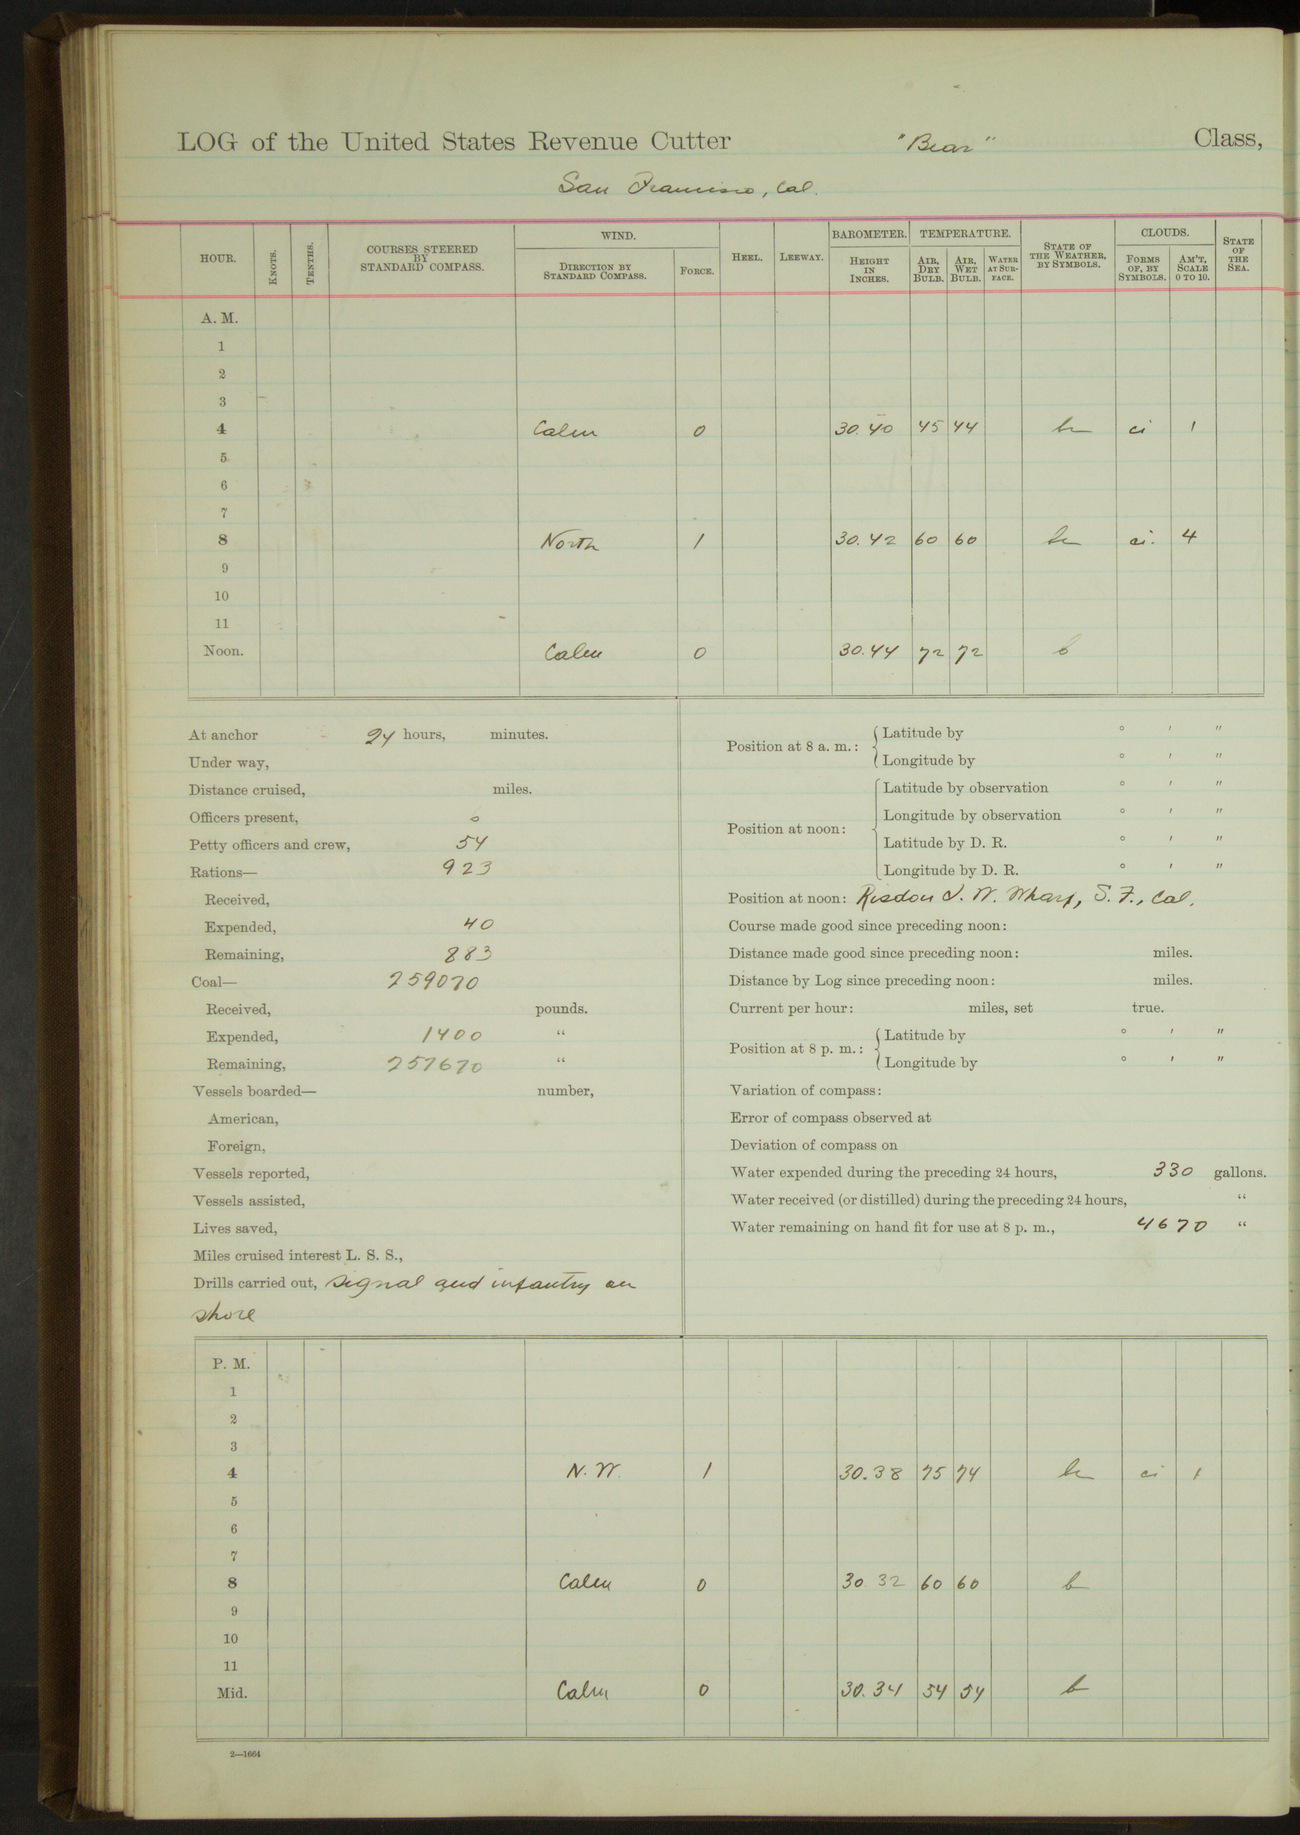 LOG of the United States Revenue Cutter "Bear" Class,
San Francisco, Cal.
HOUR. KNOTS. TENTHS. COURSES STEERED BY STANDARD COMPASS. WIND. DIRECTION BY STANDARD COMPASS. FORCE. HEEL. LEEWAY. BAROMETER. HEIGHT IN INCHES. TEMPERATURE. AIR, DRY BULB. AIR, WET BULB. WATER AT SURFACE. STATE OF THE WEATHER, BY SYMBOLS. CLOUDS. FORMS OF, BY SYMBOLS. AM'T, SCALE 0 TO 10. STATE OF THE SEA.
A. M.
1
2
3
4 Calm 0 30.40 45 44 bc ci 1
5
6
7
8 North 1 30.42 60 60 bc ci. 4
9
10
11
Noon. Calm 0 30.44 72 72 b
At anchor 24 hours, minutes.
Under way,
Distance cruised, miles.
Officers present, 0
Petty officers and crew, 54
Rations— 923
Received,
Expended, 40
Remaining, 883
Coal— 259070
Received, pounds.
Expended, 1400 "
Remaining, 257670 "
Vessels boarded— number,
American,
Foreign,
Vessels reported,
Vessels assisted,
Lives saved,
Miles cruised interest L. S. S.,
Drills carried out, signal and infantry on
shore
Position at 8 a. m.: Latitude by ° ' "
Longitude by ° ' "
Position at noon: Latitude by observation ° ' "
Longitude by observation ° ' "
Latitude by D. R. ° ' "
Longitude by D. R. ° ' "
Position at noon: Risdon I. W. Wharf, S. F., Cal.
Course made good since preceding noon:
Distance made good since preceding noon: miles.
Distance by Log since preceding noon: miles.
Current per hour: miles, set true.
Position at 8 p. m.: Latitude by ° ' "
Longitude by ° ' "
Variation of compass:
Error of compass observed at
Deviation of compass on
Water expended during the preceding 24 hours, 330 gallons.
Water received (or distilled) during the preceding 24 hours, "
Water remaining on hand fit for use at 8 p. m., 4670 "
P. M.
1
2
3
4 N. W. 1 30.38 75 74 bc ci 1
5
6
7
8 Calm 0 30 32 60 60 b
9
10
11
Mid. Calm 0 30.34 54 54 b
2—1664